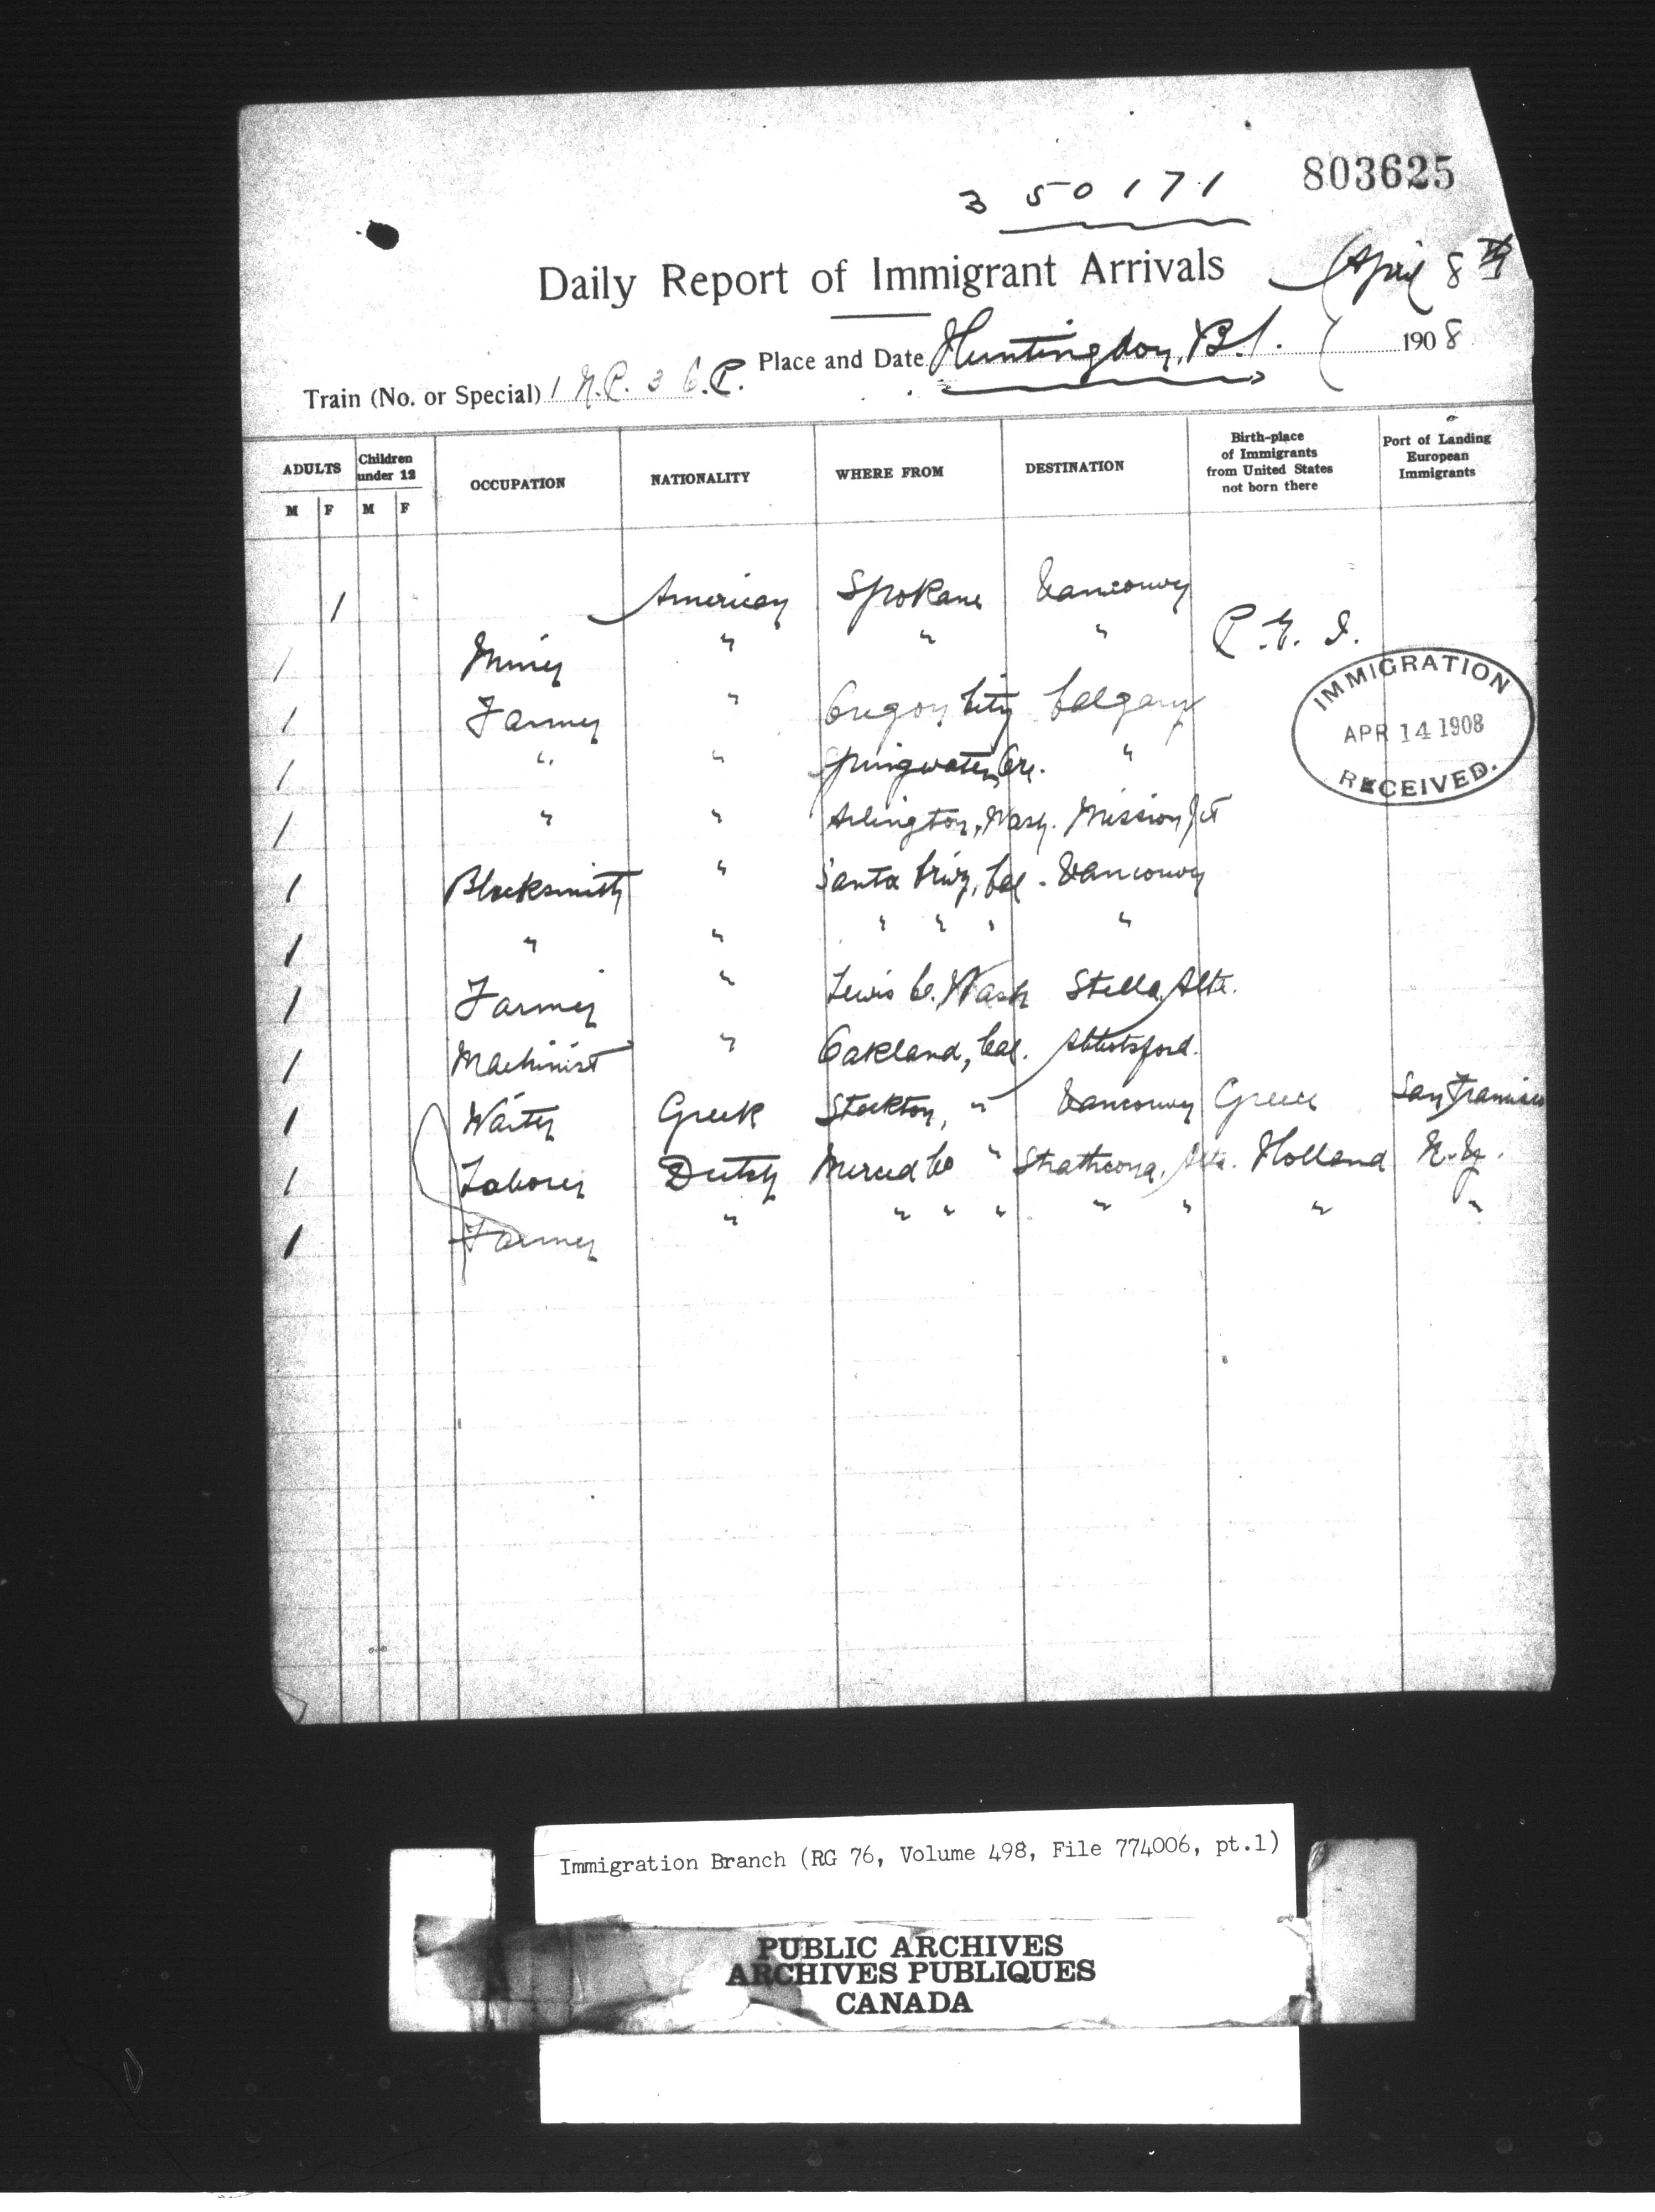 803625
3 50171
Daily Report of Immigrant Arrivals April 8th
Place and Date Huntingdon, B.C. 1908
Train (No. or Special) 1 N.P. 3 C.P.
ADULTS Children under 12 OCCUPATION NATIONALITY WHERE FROM DESTINATION Birth-place of Immigrants from United States not born there Port of Landing European Immigrants
M F M F
1 American Spokane Vancouver
1 Miner " " " P.E.I.
1 Farmer " Oregon City Calgary
1 " " Springwater, Ore. "
1 " " Arlington, Wash. Mission Jct
1 Blacksmith " Santa Cruz, Cal. Vancouver
1 " " " " " "
1 Farmer " Lewis Co. Wash Stella, Alta.
1 Machinist " Oakland, Cal. Abbotsford.
1 Waiter Greek Stockton, " Vancouver Greece San Francisco
1 Laborer Dutch Merced Co " Strathcona, Alta. Holland N.Y.
1 Farmer " " " " " " " "
IMMIGRATION
APR 14 1908
RECEIVED.
Immigration Branch (RG 76, Volume 498, File 774006, pt.1)
PUBLIC ARCHIVES
ARCHIVES PUBLIQUES
CANADA